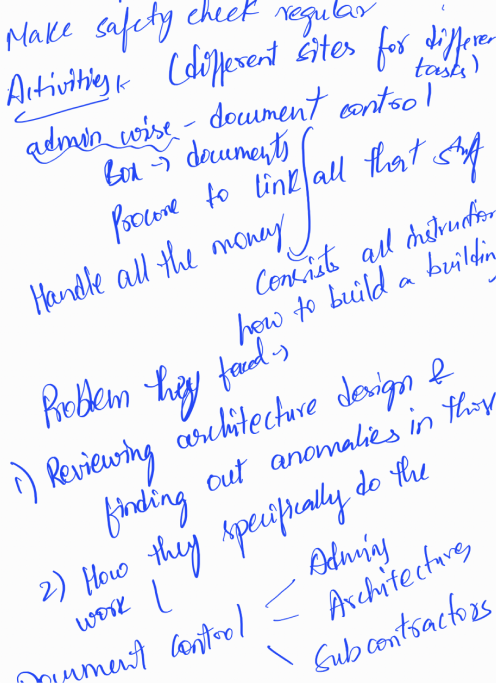 Make safety check regular
Activities (different sites for differen
tasks)
admin wise - document control
Box → documents
Procore to link all that stuff
Handle all the money
Consists all instruction
how to build a buildin
Problem they faced →
1) Reviewing architecture design &
finding out anomalies in that
2) How they specifically do the
work
Document control
Admins
Architectures
Subcontractors